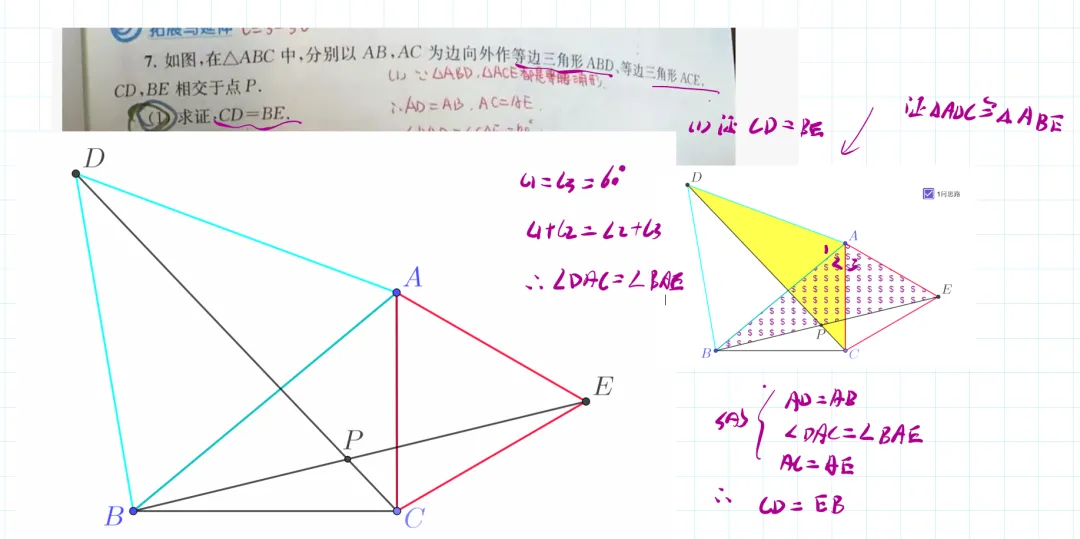 拓展与延伸
7. 如图,在△ABC 中,分别以 AB,AC 为边向外作等边三角形 ABD、等边三角形 ACE,
(1) ∵ △ABD、△ACE都是等边三角形.
CD,BE 相交于点 P.
∴AD=AB. AC=AE.
(1) 求证:CD=BE.
(1) 证 CD=BE
证△ADC≌△ABE
D
A
E
P
B
C
∠1=∠3=60°
∠1+∠2=∠2+∠3
∴∠DAC=∠BAE
D
1问思路
A
1
2 3
E
P
B
C
SAS
AD=AB
∠DAC=∠BAE
AC=AE
∴ CD=EB